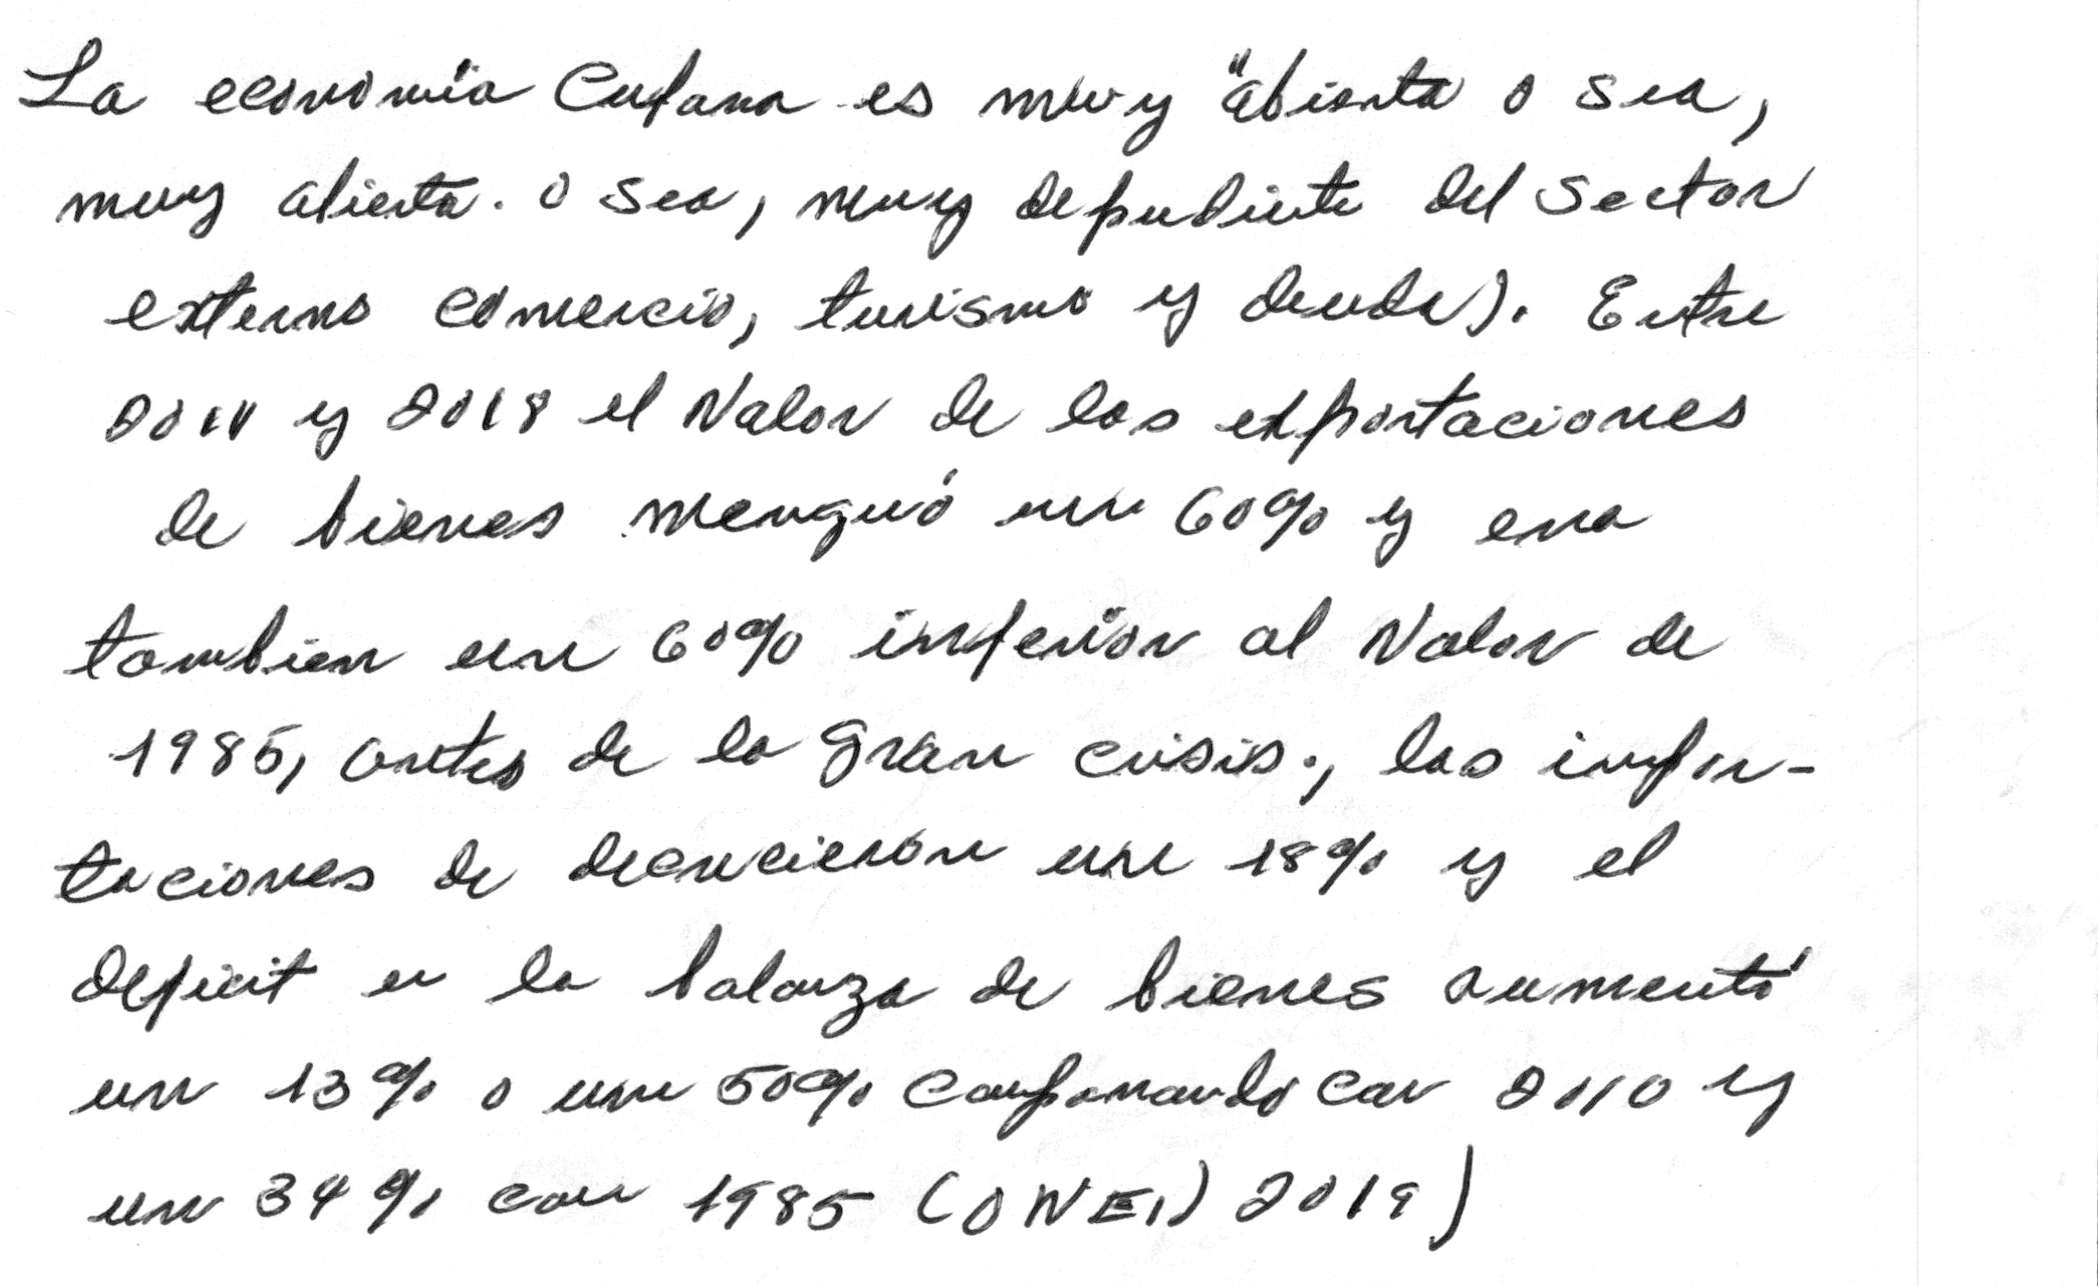 La economía Cubana es muy "abierta o sea,
muy abierta. o sea, muy dependiente del Sector
externo comercio, turismo y deuda). Entre
2011 y 2018 el Valor de las exportaciones
de bienes menguó un 60% y era
tambien un 60% inferior al Valor de
1985, antes de la gran crisis., las impor-
taciones de decrecieron un 18% y el
deficit en la balanza de bienes aumentó
un 13% o un 50% comparando con 2010 y
un 34% con 1985 (ONEI) 2019)